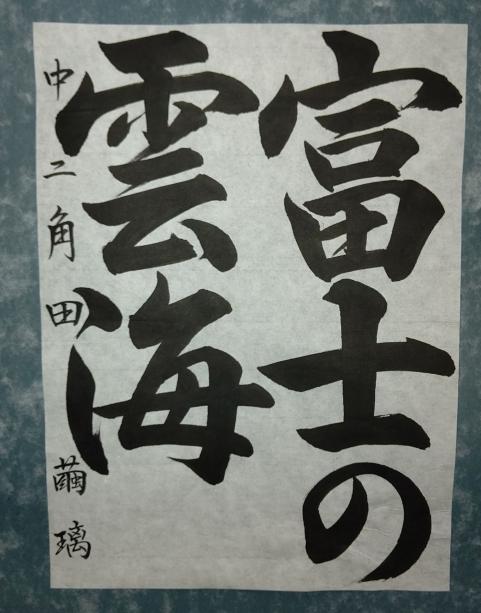 富士の
雲海
中二角田繭璃